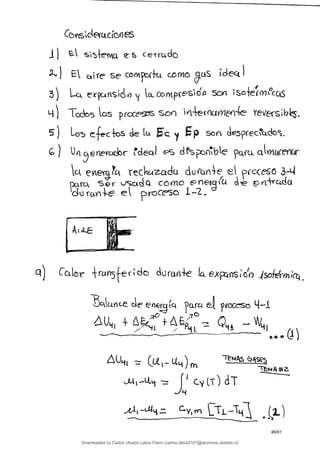 Consideraciones
1) El sistema es cerrado
2) El aire se comporta como gas ideal
3) La expansión y la compresión son isotérmicas
4) Todos los procesos son internamente reversibles.
5) Los efectos de la Ec y Ep son despreciados.
6) Un generador ideal es disponible para almacenar
la energía rechazada durante el proceso 3-4
para ser usada como energía de entrada
durante el proceso 1-2.
AIRE
a) Calor transferido durante la expansión isotérmica.
Balance de energía para el proceso 4-1
ΔU41 + ΔEc41 + ΔEp41 = Q41 - W41
0 0
...(1)
ΔU41 = (u1 - u4) m
TEMAS GASES
TEMA #2
u1 - u4 = ∫ Cv(T) dT
1
4
u1 - u4 = Cv,m [T1 - T4] .(2)
46/61
Downloaded by Carlos Ubaldo Labra Fierro (carlos.labra2101@alumnos.ubiobio.cl)